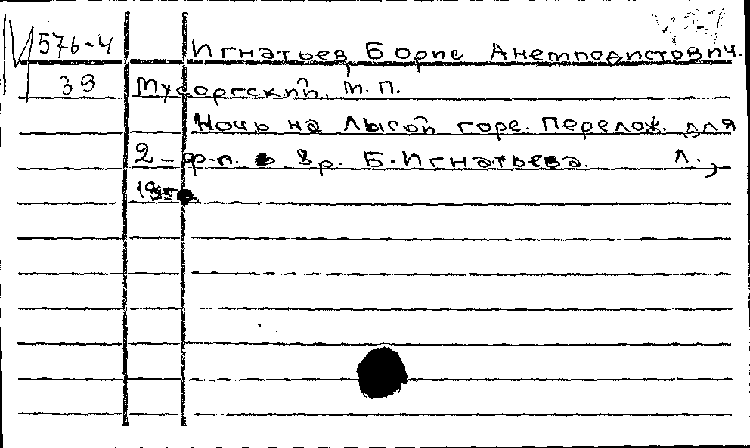 576-4 Игнатьев Борис Анемподистович.
39 Мусоргский, М. П.
Ночь на Лысой горе. Перелож. для
2-ф-п. в 8р. Б. Игнатьева. Л.,